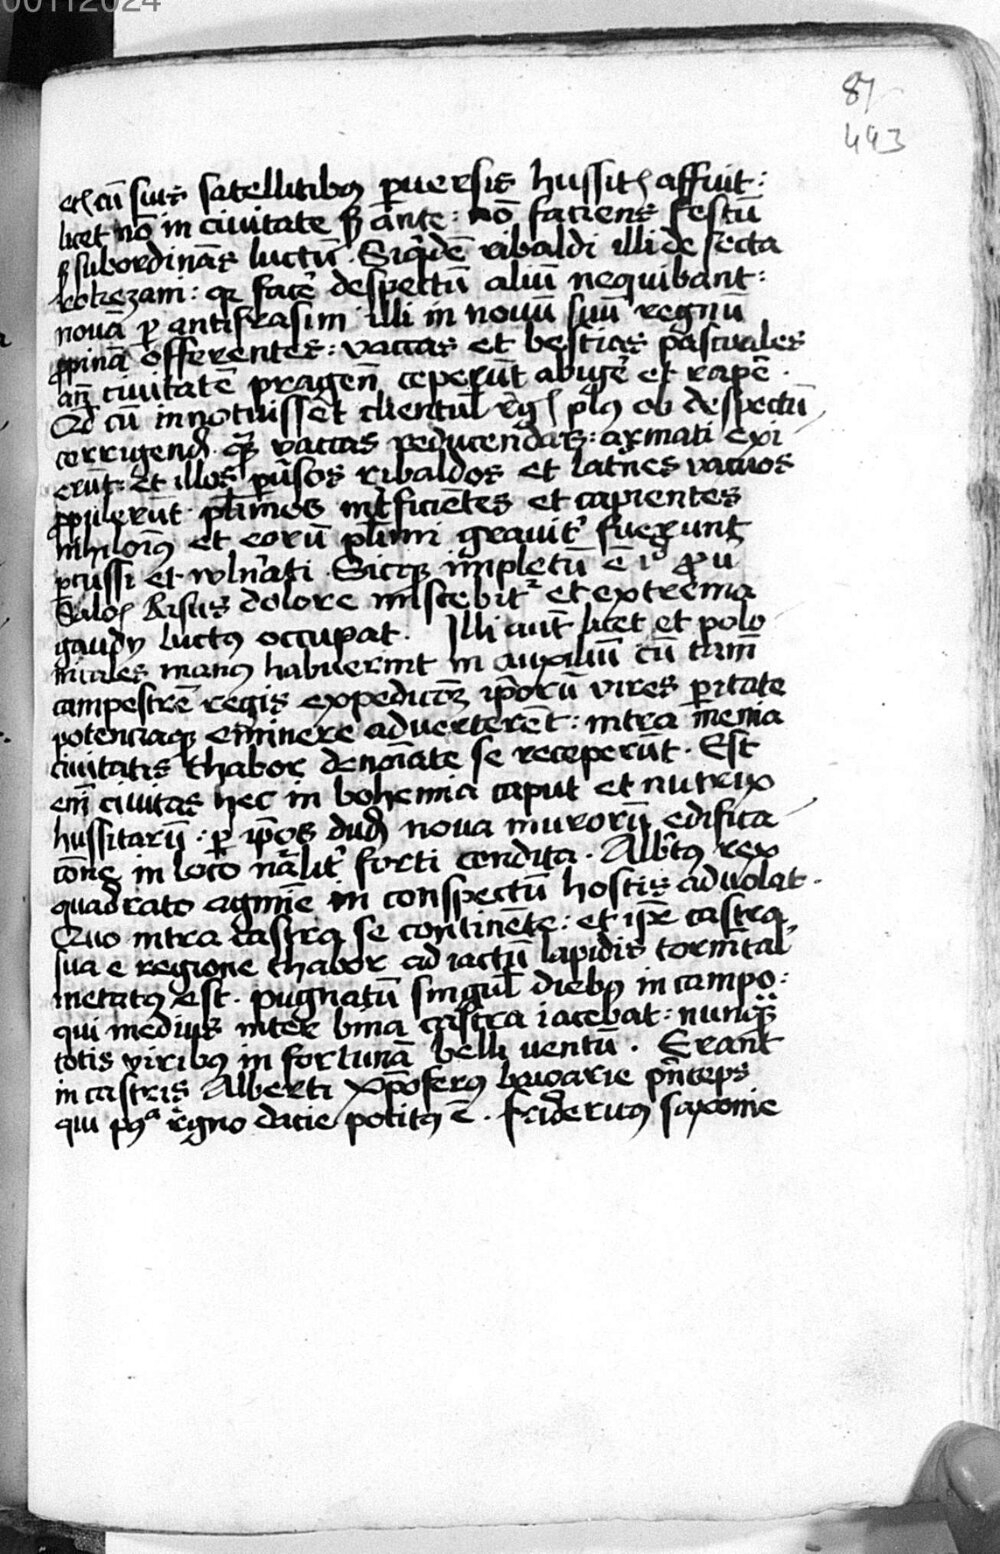 00112024
87
443
etꝭ cū suis satellitibꝰ ꝑuersis hussitꝭ affuit:
licet nō in ciuitate sꝫ ante: nō faciens festū
sꝫ subordinās luctū. Siqͥdē ribaldi illi de secta
rohezani: qꝛ facē despectū aliū nequibant:
nouā ꝑ antifrasim illi in nouū suū regnū
ꝓpinā offerentes: vaccas et bestias pascuales
an̄ ciuitatē pragen̄ ceperūt abigē et rapē.
Qd cū innotuissēt clientul̄ rḡꝭ pl̄ꝰ ob despectū
corrigend qͣꝫ vaccas reducendas: armati exi
erūt: Et illos ꝑusos ribaldos et latnes vacuos
ꝓpulerūt pl̄imos int̄ficiētes et capientes
nihiloīꝰ et eorū pl̄imi grauitˀ fuerunt
ꝑcussi et vuln̄ati. Sicqꝫ impletū ē iᵈ ꝓu
Salōꝭ Risus dolore miscebitˀ et extrema
gaudij luctꝰ occupat. Illi aut̄ licet et polo
niales manꝰ habuerint in auxiliū cū tam̄
campestrē regis expedicōꝫ ip̄orū vires ꝑitate
potenciaqꝫ eminere aduerterēt: intra menia
ciuitatis thabor denoīate se receperūt. Est
em̄ ciuitas hec in bohemia caput et nutrix
hussitarū: ꝑ ip̄os dudū noua murorū edifica
cōne in loco nālitˀ forti condita. Alb̄tꝰ rex
quadrato agmīe in conspectū hostis aduolat.
Quo intra castra se continēte: et ip̄e castra
sua e regione thabor ad iactū lapidis tormētal
metatꝰ est. pugnatū singul̄ diebꝰ in campo:
qui medius inter bina castra iacebat: nunqͣꝫ
totis viribꝰ in fortunā belli uentū. Erant
in castris Alberti xp̄oferꝰ bauarie pn̄ceps
qui pꝰᵃ regno dacie potitꝰ ē. fridericꝰ saxonie